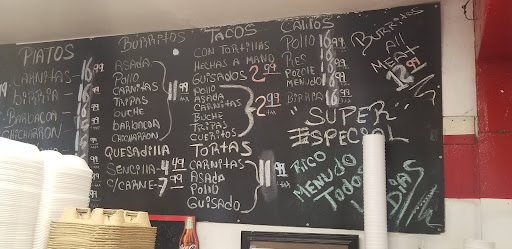 PLATOS
CARNITAS - 16.99
birria - 16.99
BARBACOA 16.99
CHICHARRON 16.99
BURRITOS
ASADA
Pollo
CARNITAS
TRIPAS
buche
barbacoa
CHICHARRON
11.99
QUESADILLA
SENCILLA - 4.99
C/CARNE - 7.99
TACOS
CON TORTILLAS
HECHAS A MANO
GUISADOS 2.99
Pollo
ASADA
CARNITAS
BUCHE
TRIPAS
CUERITOS
2.99
TORTAS
CARNITAS
ASADA
Pollo
GUISADO
11.99
CALDOS
Pollo 16.99
RES 16.99
POZOLE 16.99
MENUDO 16.99
BIRRIA 16.99
BURRITOS
All
MEAT
12.99
"SUPER"
ESPECIAL
RICO
MENUDO
TODOS
DIAS